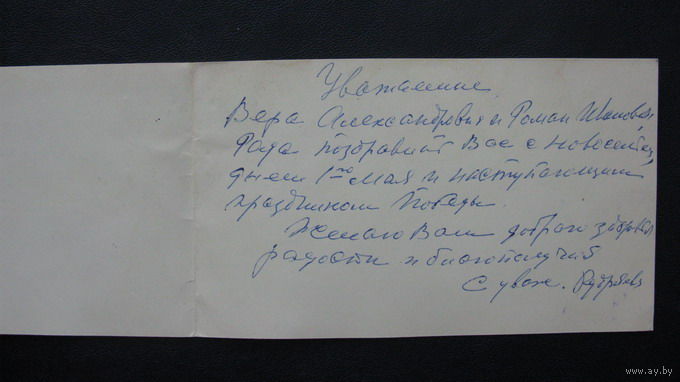 Уважаемые
Вера Александровна и Роман
Рада поздравит Вас с новосельем,
днем 1го мая и наступающим
праздником Победы.
Желаю Вам доброго здоровья
радости и благополучия
С уваж.
www.ay.by